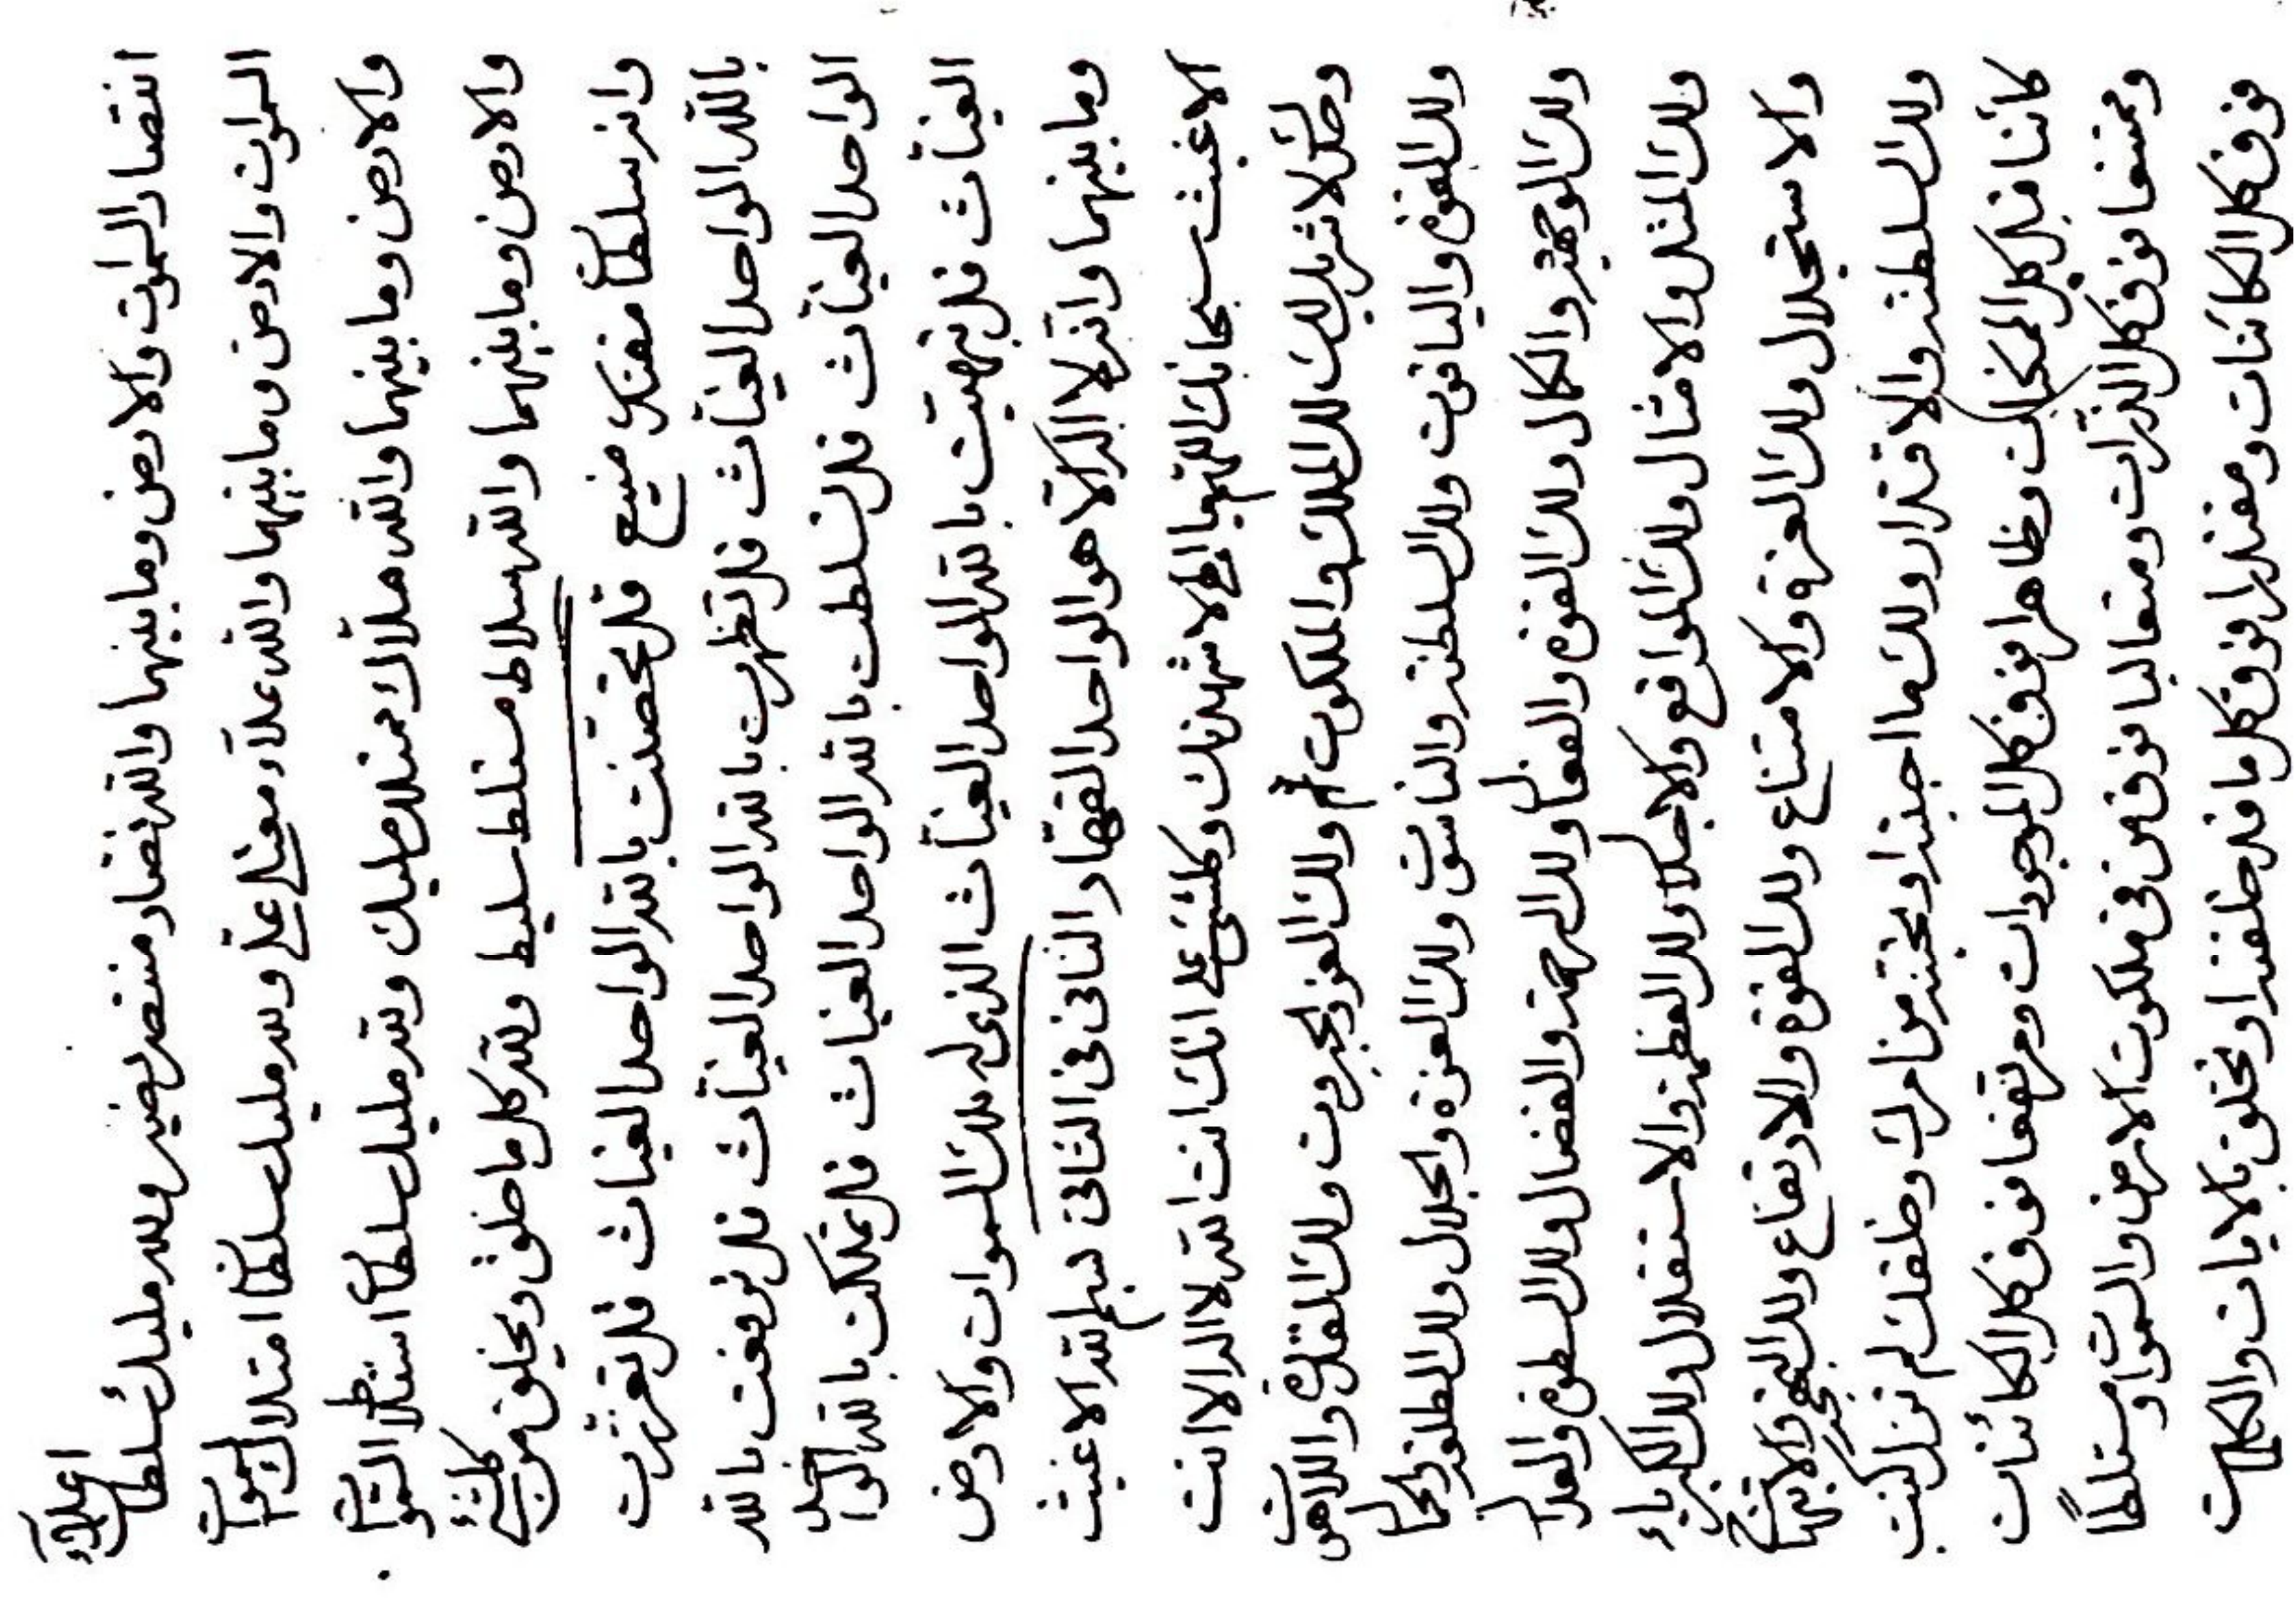 انتصار السموات والارض وما بينهما والله نصار منتصر نصير ولله مليك سلطان اعتلاء
السموات والارض وما بينهما والله علاء معتلي علي ولله مليك سلطان امتلاك السموات
والارض وما بينهما والله ملاك ممتلك مليك ولله مليك سلطان استلاط السموات
والارض وما بينهما والله سلاط مستلط سليط ولله كل ما خلق ويخلق من كلشيء
وانه سلطان مقتدر منيع قل تحصنت بالله الواحد الغياث قل تعززت
بالله الواحد الغياث قل تظهرت بالله الواحد الغياث قل ترفعت بالله
الواحد الغياث قل تسلطت بالله الواحد الغياث قل تملكت بالله الواحد
الغياث قل تبهيت بالله الواحد الغياث الذي له ملك السموات والارض
وما بينهما وانه لا اله الا هو الواحد القهار الثاني في الثاني بسم الله الاغيث
الاغيث سبحانك اللهم يا الهي لاشهدنك وكلشيء على انك انت الله لا اله الا انت
وحدك لا شريك لك لك الملك والملكوت ولك العز والجبروت ولك القدرة واللاهوت
ولك القوة والياقوت ولك السلطنة والناسوت ولك العزة والجلال ولك الطلعة والجمال
ولك الوجهة والكمال ولك القوة والفعال ولك الرحمة والفضال ولك السطوة والعدال
ولك المثل والامثال ولك المواقع والاجلال ولك العظمة والاستقلال ولك الكبرياء
والاستجلال ولك العزة والامتناع ولك القوة والارتفاع ولك البهجة والابتهاج
ولك السلطنة والاقتدار ولك ما احببته او تحبنه من امرك وخلقك لم تزل كنت
كائنا قبل كل الممكنات وظاهرا فوق كل الموجودات ومرتفعا فوق كل الكائنات
وممتنعا فوق كل الذرات ومتعاليا فوق من في ملكوت الارض والسموات ومستلطا
فوق كل الكائنات ومقتدرا فوق كل ما قد خلقته او تخلق بالايات والكلمات